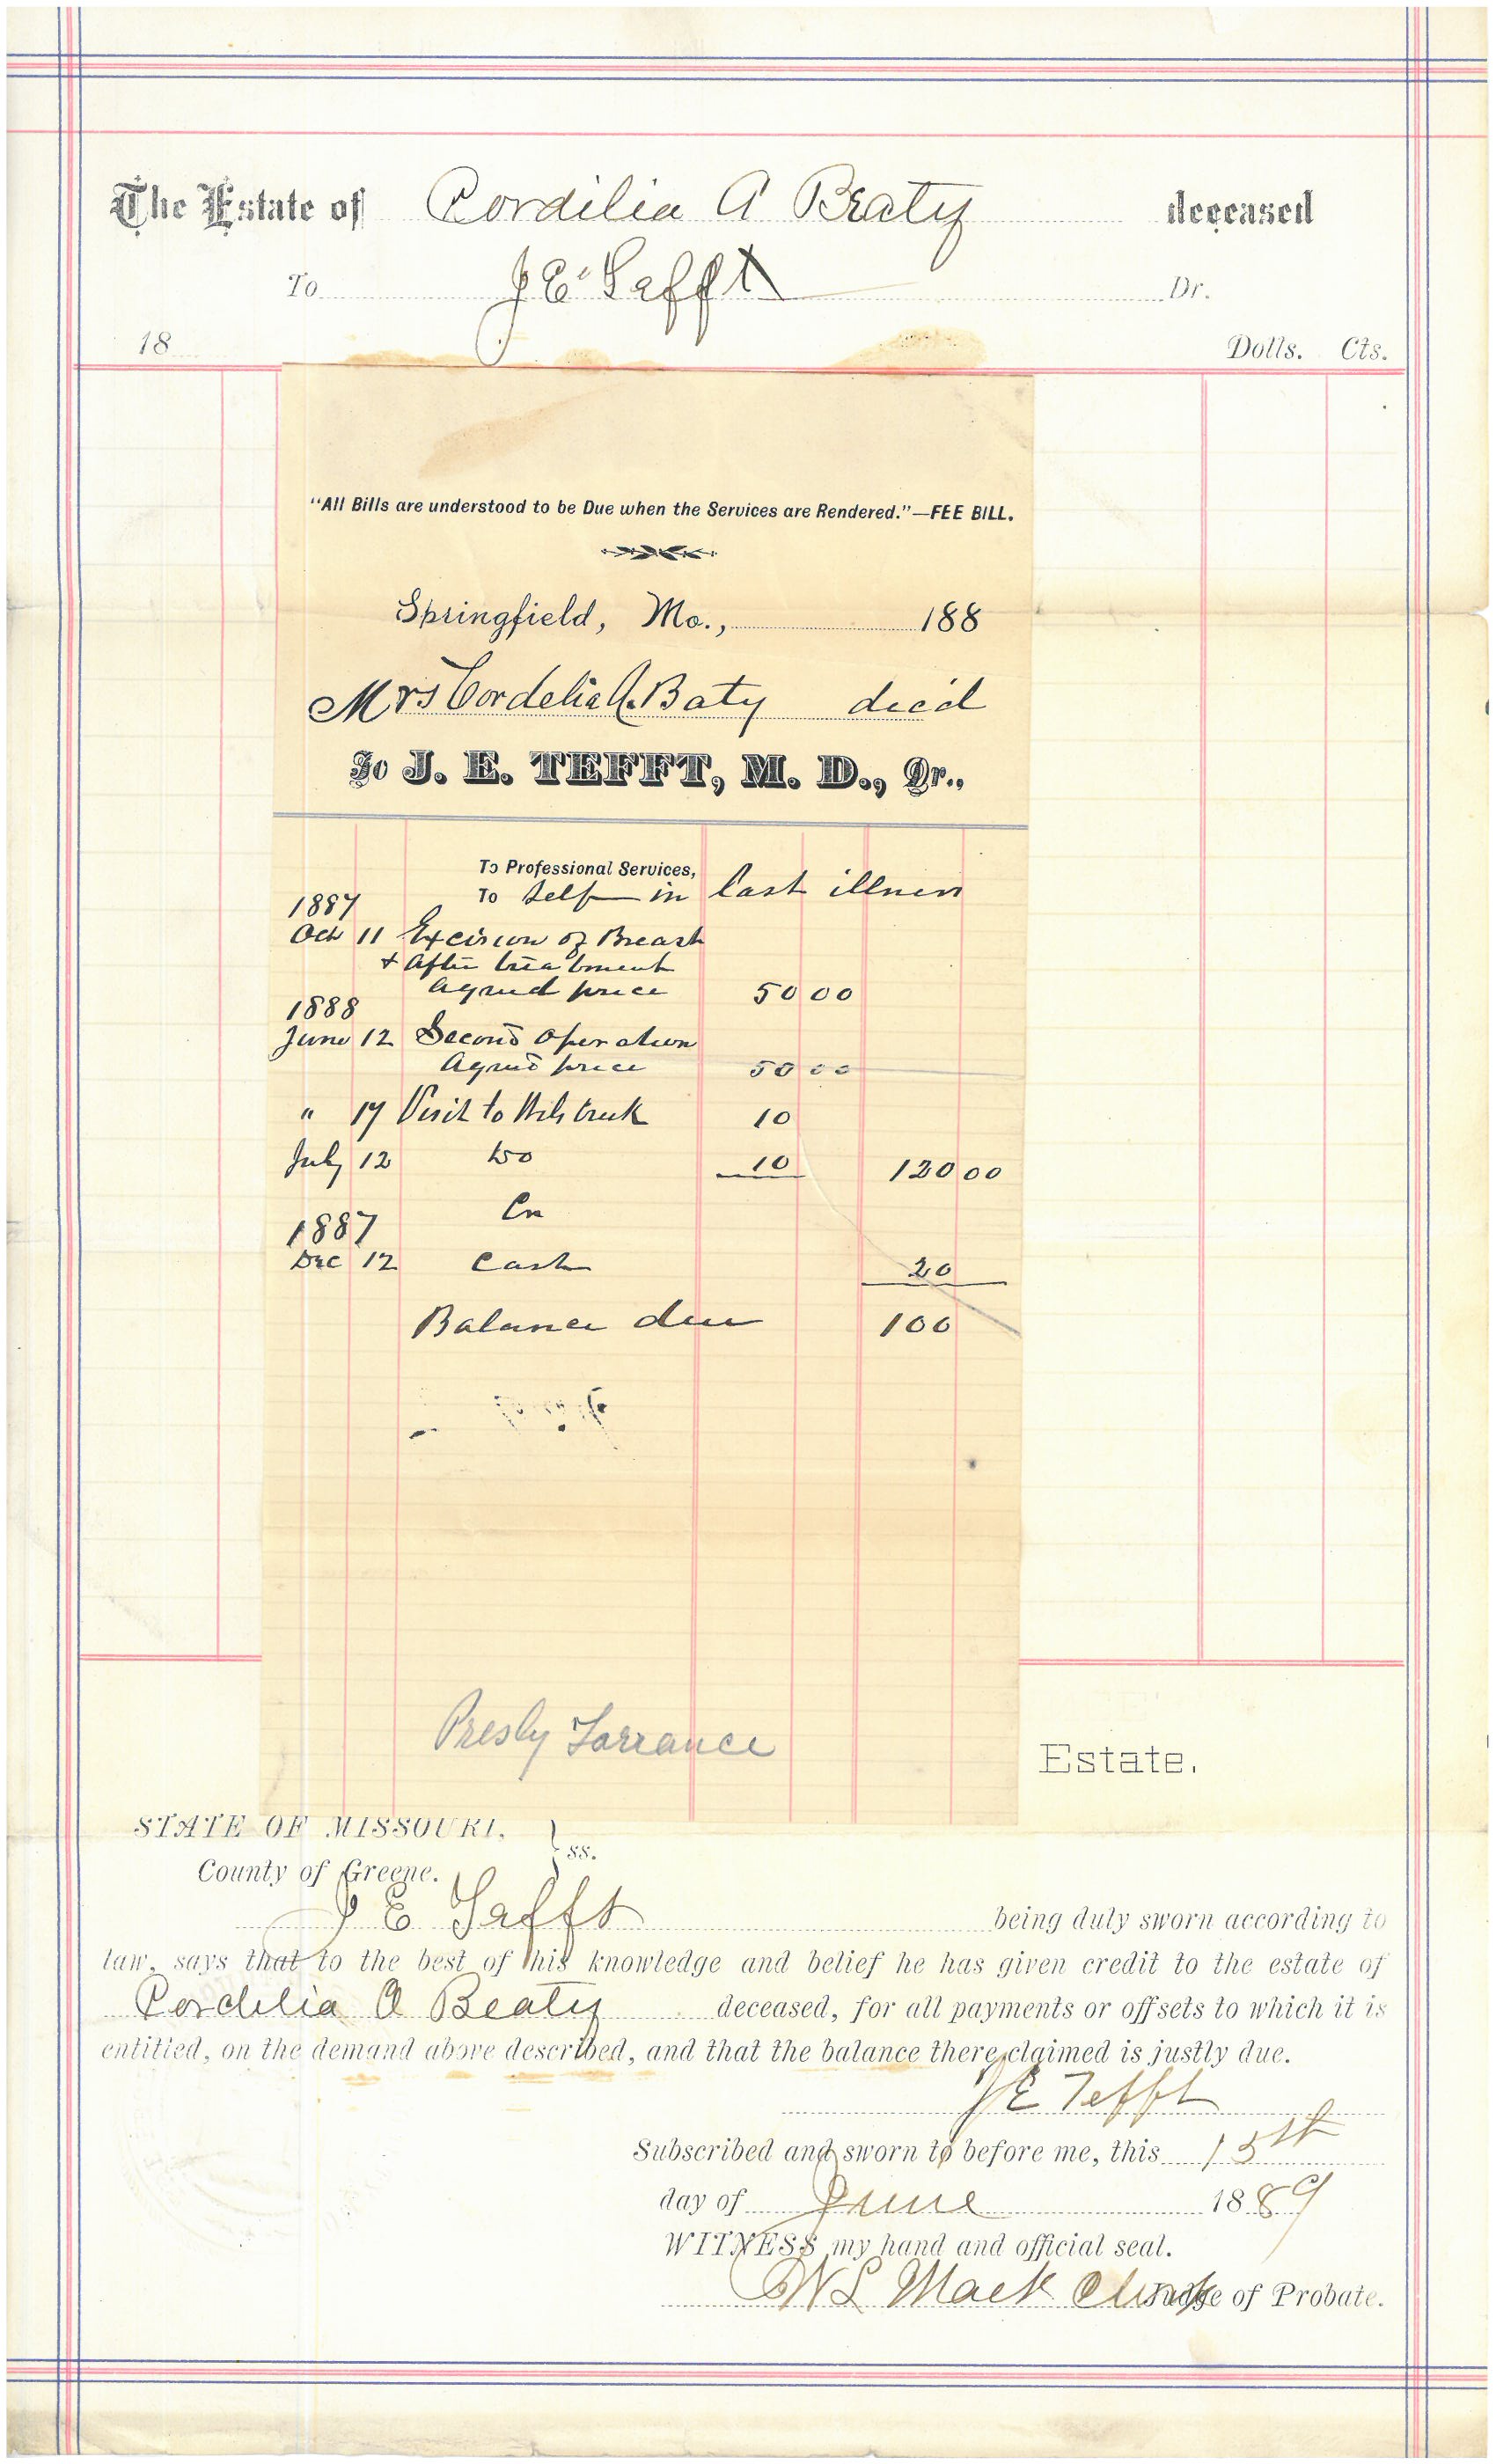 The Estate of Cordilia A Beaty deceased
To J E Tafft Dr.
18 Dolls. Cts.
"All Bills are understood to be Due when the Services are Rendered."—FEE BILL.
Springfield, Mo., 188
Mrs Cordelia A. Baty dec'd
To J. E. TEFFT, M. D., Dr.,
To Professional Services,
1887 To Self in last illness
Oct 11 Excision of Breast
+ After treatment
Agreed price 50 00
1888
June 12 Second Operation
Agreed price 50 00
" 17 Visit to
July 12 Do 10 120 00
10
Cr
1887
Dec 12 Cash 20
Balance due 100
Presly Torrance
Estate.
STATE OF MISSOURI,
} ss.
County of Greene.
J E Tafft being duly sworn according to
law, says that to the best of his knowledge and belief he has given credit to the estate of
Cordelia A Beaty deceased, for all payments or offsets to which it is
entitled, on the demand above described, and that the balance there claimed is justly due.
J E Tefft
Subscribed and sworn to before me, this 15th
day of June 1889
WITNESS my hand and official seal.
W L Mack Clerk Judge of Probate.